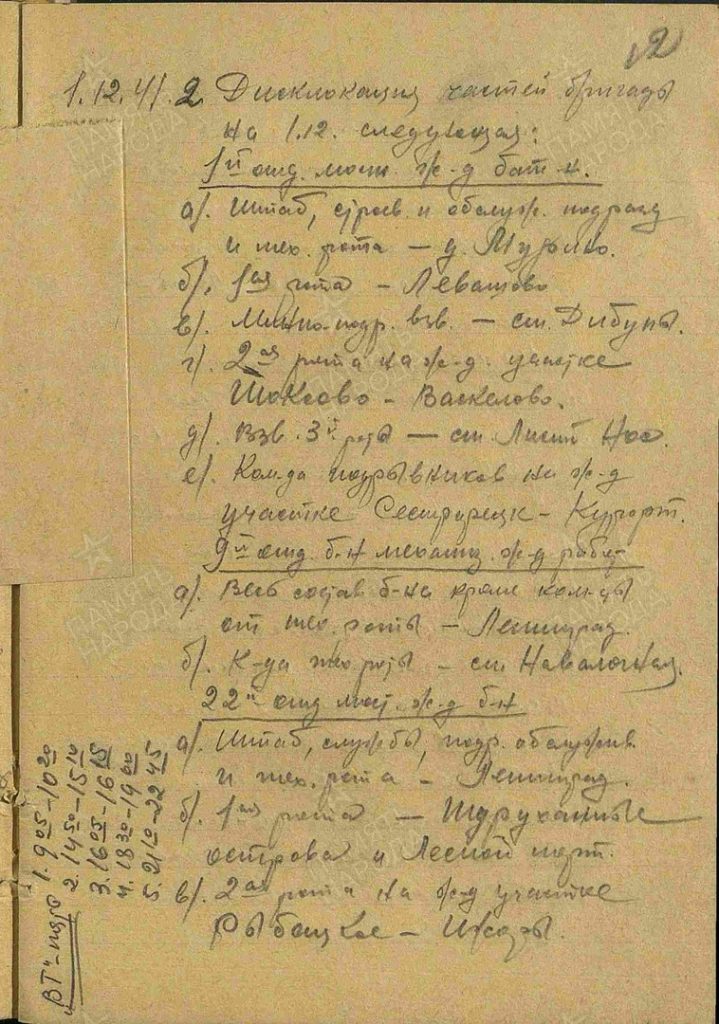 2
1.12.41. 2. Дисклокация частей бригады
на 1.12. следующая:
1й отд. мост. ж-д бат-н.
а/. Штаб, строев. и обслуж. подразд
и тех. рота – д. Мурино.
б/. 1ая рота – Левашово
в/. Минно-подр. взв. – ст. Дибуны.
г/. 2ая рота на ж-д. участке
Токсово – Васкелово.
д/. Взв. 3й роты – ст. Лисий Нос.
е/. Ком-да подрывников на ж-д
участке Сестрорецк – Курорт.
9й отд. б-н механиз. ж-д работ
а/. Весь состав б-на кроме ком-ды
от тех. роты – Ленинград.
б/. К-да тех роты – ст. Навалочная.
22й отд мост. ж-д б-н
а/. Штаб, службы, подр. обслужив.
и тех. рота – Ленинград.
б/. 1ая рота – Турухтанные
острова и Лесной порт.
в/. 2ая рота на ж-д участке
Рыбацкое – Ижоры.
"ВТ"
1. 9 05 – 10 20
2. 14 50 – 15 10
3. 16 05 – 16 15
4. 18 30 – 19 00
5. 21 10 – 22 45
ПАМЯТЬ
НАРОДА